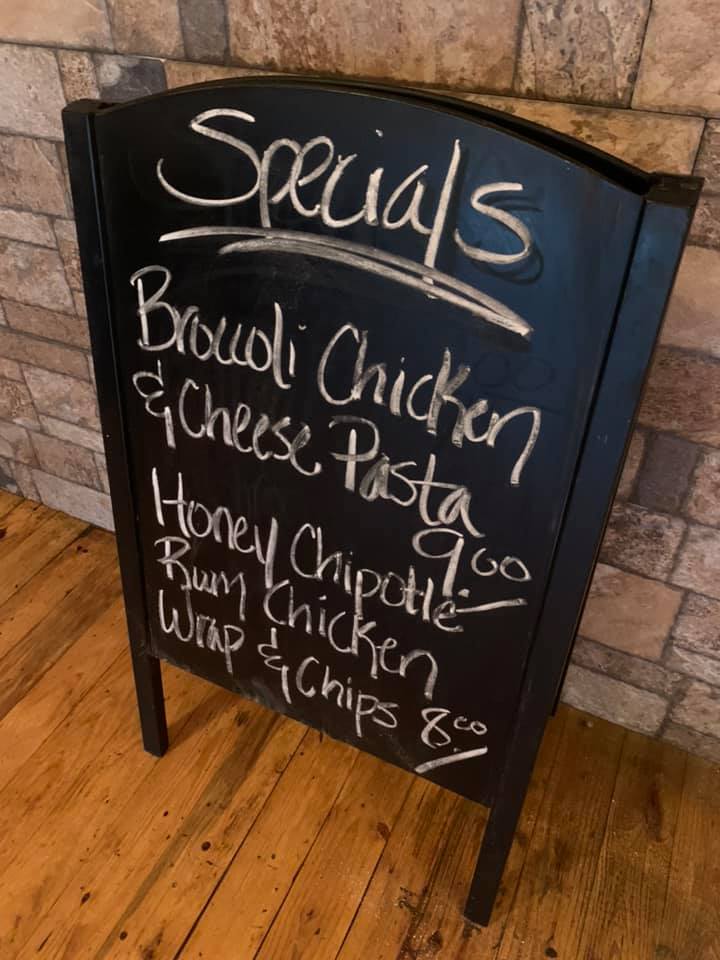 Specials
Broccoli Chicken
& Cheese Pasta
9.00
Honey Chipotle
Rum Chicken
Wrap & Chips 8.00